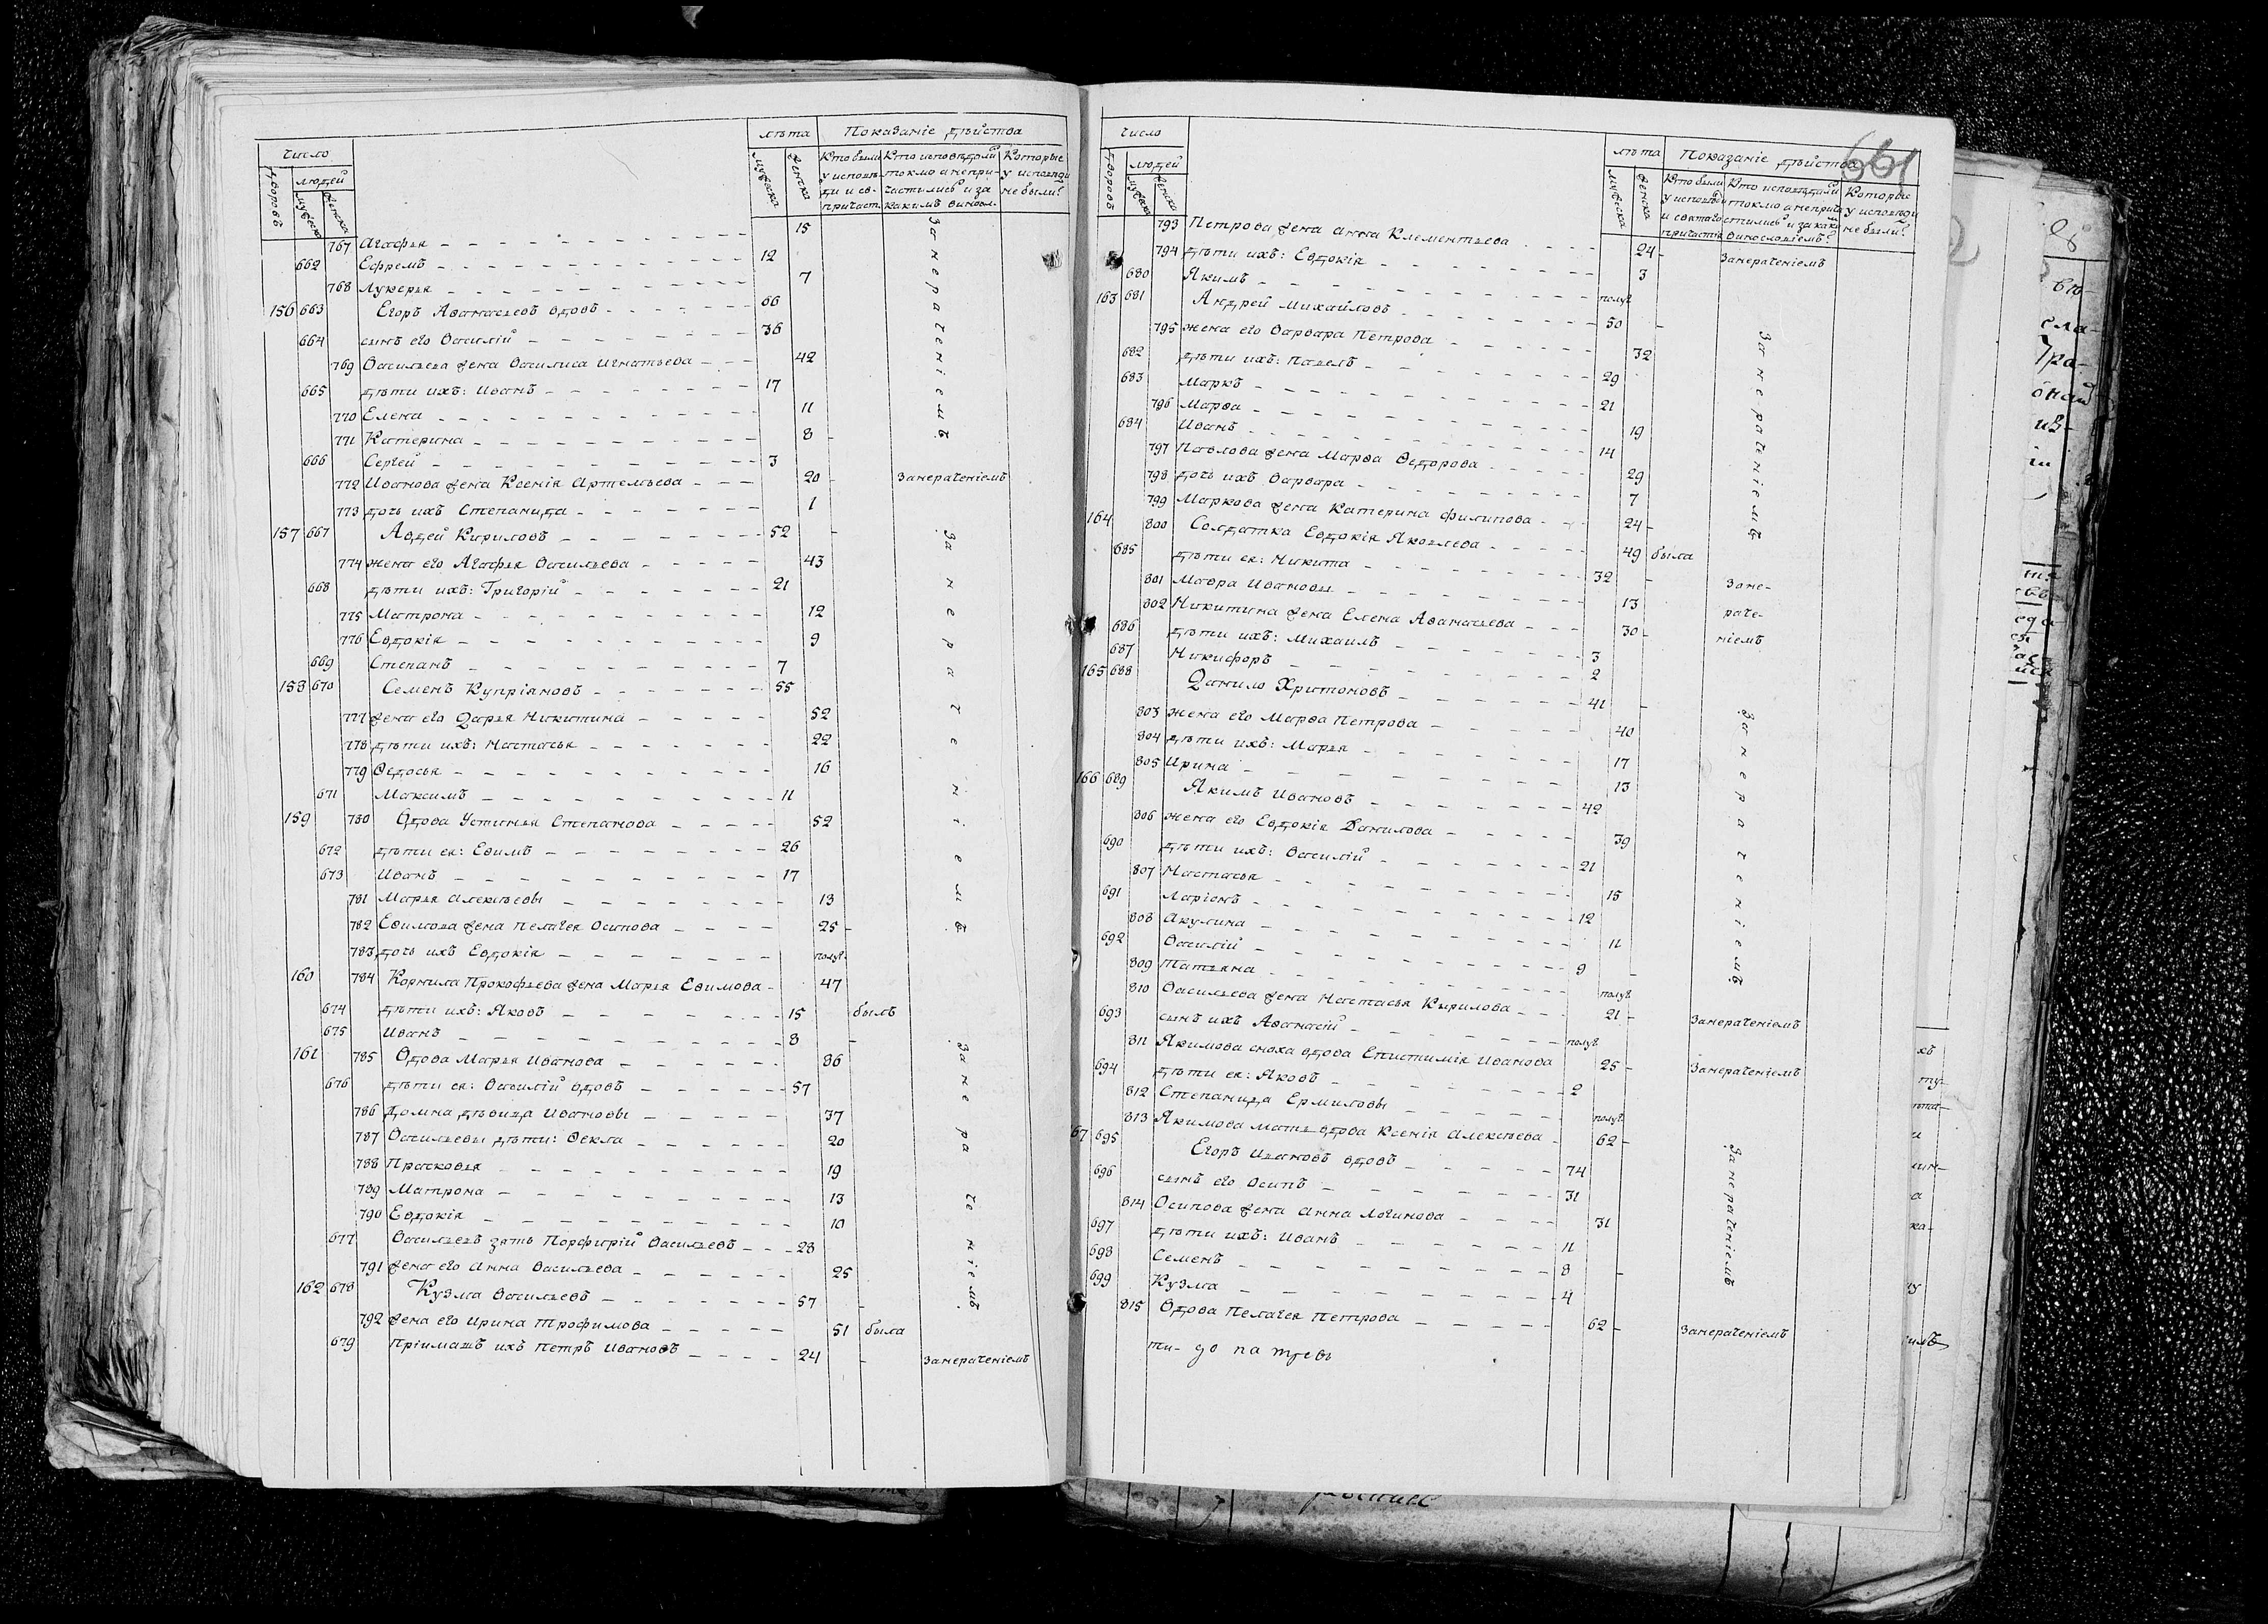 число
лѣта Показаніе дѣйства
дворовъ людей мужеска женска
мужеска женска
Кто были у исповѣди и св. причаст.
Кто исповѣдал. токмо а не причастились и за какимъ виносл.
Которые у исповѣди не были?
767 Агафья 15
662 Ефремъ 12
768 Лукерья 7
156 663 Егоръ Аѳанасьевъ вдовъ 66
664 сынъ его Василій 36
769 Васильева жена Василиса Игнатьева 42
665 дѣти ихъ: Иванъ 17
770 Елена 11
771 Катерина 8
666 Сергей 3
За нераченіемъ
772 Иванова жена Ксенія Артемьева 20 За нераченіемъ
773 дочь ихъ Степанида 1
157 667 Авдей Кириловъ 52
774 жена его Агафья Васильева 43
668 дѣти ихъ: Григорій 21
775 Матрона 12
776 Евдокія 9
669 Степанъ 7
158 670 Семенъ Купріяновъ 55
777 жена его Дарья Никитина 52
778 дѣти ихъ: Настасья 22
779 Ѳедосья 16
671 Максимъ 11
159 780 Вдова Устинья Степанова 52
672 дѣти ея: Еѳимъ 26
673 Иванъ 17
781 Марья Алексѣевы 13
782 Еѳимова жена Пелагея Осипова 25
За нераченіемъ
783 дочь ихъ Евдокія полуг.
160 784 Корнила Прокофьева жена Марья Еѳимова 47
674 дѣти ихъ: Яковъ 15 былъ
675 Иванъ 8
161 785 Вдова Марья Иванова 86
676 дѣти ея: Василій вдовъ 57
786 Домна дѣвица Ивановы 37
787 Васильевы дѣти: Ѳекла 20
788 Прасковья 19
789 Матрона 13
790 Евдокія 10
677 Васильевъ зять Порфирій Васильевъ 28
791 жена его Анна Васильева 25
За нераченіемъ
162 678 Кузма Васильевъ 57
792 жена его Ирина Трофимова 51 была
679 Пріимашъ ихъ Петръ Ивановъ 24 За нераченіемъ
число
лѣта Показаніе дѣйства
661
дворовъ людей мужеска женска
мужеска женска
Кто были у исповѣди и святаго причастія
Кто исповѣдали токмо а не причастились и за каким винословіемъ?
Которые у исповѣди не были?
793 Петрова жена Анна Клементьева 24 За нераченіемъ
794 дѣти ихъ: Евдокія 3
680 Якимъ полуг.
163 681 Андрей Михайловъ 50
795 жена его Варвара Петрова 32
682 дѣти ихъ: Павелъ 29
683 Маркъ 21
796 Марѳа 19
684 Иванъ 14
797 Павлова жена Марѳа Ѳедорова 29
798 дочь ихъ Варвара 7
799 Маркова жена Катерина Филипова 24
За нераченіемъ
164 800 Солдатка Евдокія Яковлева 49 была
685 дѣти ея: Никита 32
801 Мавра Ивановы 13
802 Никитина жена Елена Аѳанасьева 30
За не-
раче-
ніемъ
686 дѣти ихъ: Михаилъ 3
687 Никифоръ 2
165 688 Данило Хритоновъ 41
803 жена его Марѳа Петрова 40
804 дѣти ихъ: Марья 17
805 Ирина 13
166 689 Якимъ Ивановъ 42
806 жена его Евдокія Данилова 39
690 дѣти ихъ: Василій 21
807 Настасья 15
691 Ларіонъ 12
808 Акулина 11
692 Василій 9
За нераченіемъ
809 Татьяна полуг.
810 Васильева жена Настасья Кирилова 21 За нераченіемъ
693 сынъ ихъ Аѳанасій полуг.
811 Якимова сноха вдова Епистимія Иванова 25 За нераченіемъ
694 дѣти ея: Яковъ 2
812 Степанида Ермиловы полуг.
813 Якимова мать вдова Ксенія Алексѣева 62
67 695 Егоръ Ивановъ вдовъ 74
696 сынъ его Осипъ 31
814 Осипова жена Анна Логинова 31
697 дѣти ихъ: Иванъ 11
698 Семенъ 8
За нераченіемъ
699 Кузма 4
815 Вдова Пелагея Петрова 62 За нераченіемъ